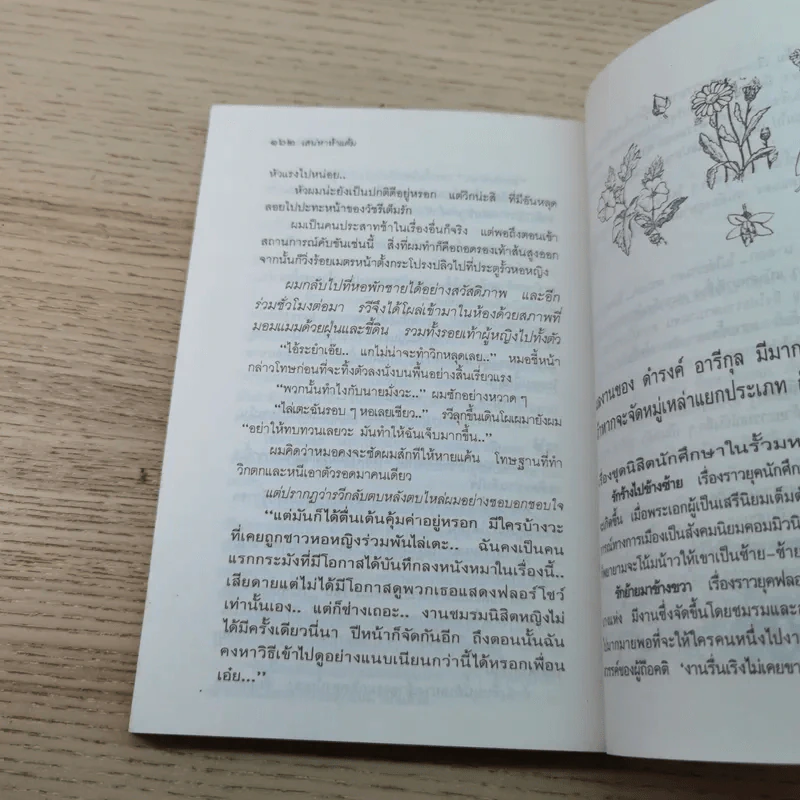 ๒๖๒ เสน่หาห้าแต้ม
หัวแรงไปหน่อย..
หัวผมน่ะยังเป็นปกติดีอยู่หรอก แต่วิกน่ะสิ ที่มีอันหลุด
ลอยไปปะทะหน้าของวัชรีเต็มรัก
ผมเป็นคนประสาทช้าในเรื่องอื่นก็จริง แต่พอถึงตอนเข้า
สถานการณ์คับขันเช่นนี้ สิ่งที่ผมทำก็คือถอดรองเท้าส้นสูงออก
จากนั้นก็วิ่งร้อยเมตรหน้าตั้งกระโปรงปลิวไปที่ประตูรั้วหอหญิง
ผมกลับไปที่หอพักชายได้อย่างสวัสดิภาพ และอีก
ร่วมชั่วโมงต่อมา รวีจึงได้โผล่เข้ามาในห้องด้วยสภาพที่
มอมแมมด้วยฝุ่นและขี้ดิน รวมทั้งรอยเท้าผู้หญิงไปทั้งตัว
“ไอ้ระยำเอ๊ย.. แกไม่น่าจะทำวิกหลุดเลย..” หมอชี้หน้า
กล่าวโทษก่อนที่จะทิ้งตัวลงนั่งบนพื้นอย่างสิ้นเรี่ยวแรง
“พวกนั้นทำไงกับนายมั่งวะ..” ผมซักอย่างหวาด ๆ
“ไล่เตะฉันรอบ ๆ หอเลยเชียว..” รวีลุกขึ้นเดินโผเผมายังผม
“อย่าให้ทบทวนเลยวะ มันทำให้ฉันเจ็บมากขึ้น..”
ผมคิดว่าหมอคงจะซัดผมสักทีให้หายแค้น โทษฐานที่ทำ
วิกตกและหนีเอาตัวรอดมาคนเดียว
แต่ปรากฏว่ารวีกลับตบหลังตบไหล่ผมอย่างชอบอกชอบใจ
“แต่มันก็ได้ตื่นเต้นคุ้มค่าอยู่หรอก มีใครบ้างวะ
ที่เคยถูกชาวหอหญิงร่วมพันไล่เตะ.. ฉันคงเป็นคน
แรกกระมังที่มีโอกาสได้บันทึกลงหนังหมาในเรื่องนี้..
เสียดายแต่ไม่ได้มีโอกาสดูพวกเธอแสดงฟลอร์โชว์
เท่านั้นเอง.. แต่ก็ช่างเถอะ.. งานชมรมนิสิตหญิงไม่
ได้มีครั้งเดียวนี่นา ปีหน้าก็จัดกันอีก ถึงตอนนั้นฉัน
คงหาวิธีเข้าไปดูอย่างแนบเนียนกว่านี้ได้หรอกเพื่อน
เอ๋ย...”
ของ ดำรงค์ อารีกุล มีมาก
หากจะจัดหมู่เหล่าแยกประเภท
ชุดนิสิตนักศึกษาในรั้วมห
รักร้างไปข้างซ้าย เรื่องราวยุคนักศึก
เกิดขึ้น เมื่อพระเอกผู้เป็นเสรีนิยมเต็มตั
ทางการเมืองเป็นสังคมนิยมคอมมิวนิ
พยายามจะโน้มน้าวให้เขาเป็นซ้าย-ซ้าย
รักย้ายมาข้างขวา เรื่องราวยุคฟลอ
แห่ง มีงานซึ่งจัดขึ้นโดยชมรมและก
มากมายพอที่จะให้ใครคนหนึ่งไปงา
ของผู้ถือคติ ‘งานรื่นเริงไม่เคยขา